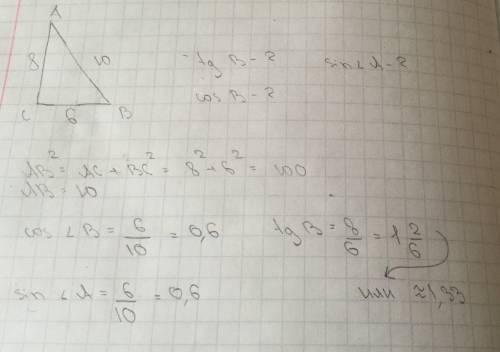 A
8
10
C
6
B
tg B - ?
sin∠A - ?
cos B - ?
AB² = AC + BC² = 8² + 6² = 100
AB = 10
cos ∠B = 6/10 = 0,6
tg B = 8/6 = 1 2/6
sin ∠A = 6/10 = 0,6
или ≈1,33